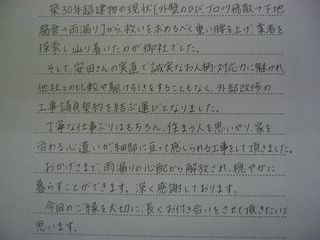 築30年超建物の現状(外壁のひび・ブロック飛散→下地
腐食→雨漏り)から、救いを求めるべく重い腰を上げ、業者を
探索し辿り着いたのが御社でした。
そして、安田さんの実直で誠実なお人柄・対応力に魅かれ
他社との比較や駆け引きをすることもなく、外部改修の
工事請負契約を結ぶ運びとなりました。
丁寧な仕事ぶりはもちろん、住まう人を思いやり、家を
労わる心遣いが細部に亘って感じられる工事をして頂きました。
おかげさまで、雨漏りの心配から解放され、穏やかに
暮らすことができます。深く感謝しております。
今回のご縁を大切に、長くお付き合いをさせて頂きたいと
思います。